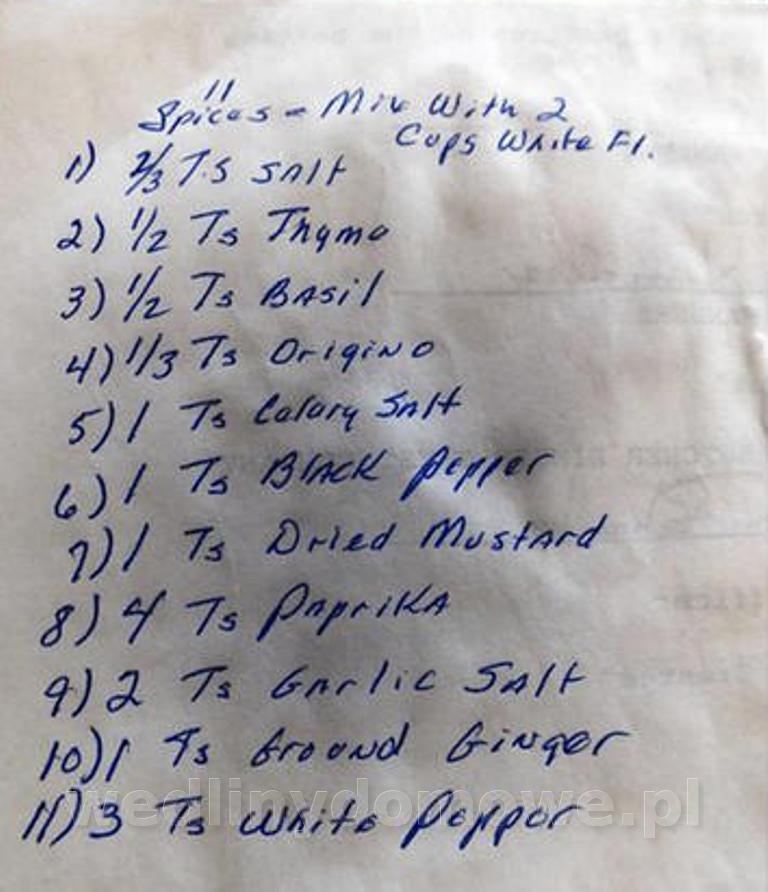 11
Spices - Mix With 2
Cups White Fl.
1) 2/3 Ts Salt
2) 1/2 Ts Thyme
3) 1/2 Ts Basil
4) 1/3 Ts Origino
5) 1 Ts Celary Salt
6) 1 Ts Black Pepper
7) 1 Ts Dried Mustard
8) 4 Ts Paprika
9) 2 Ts Garlic Salt
10) 1 Ts Ground Ginger
11) 3 Ts White Pepper
wedlinydomowe.pl